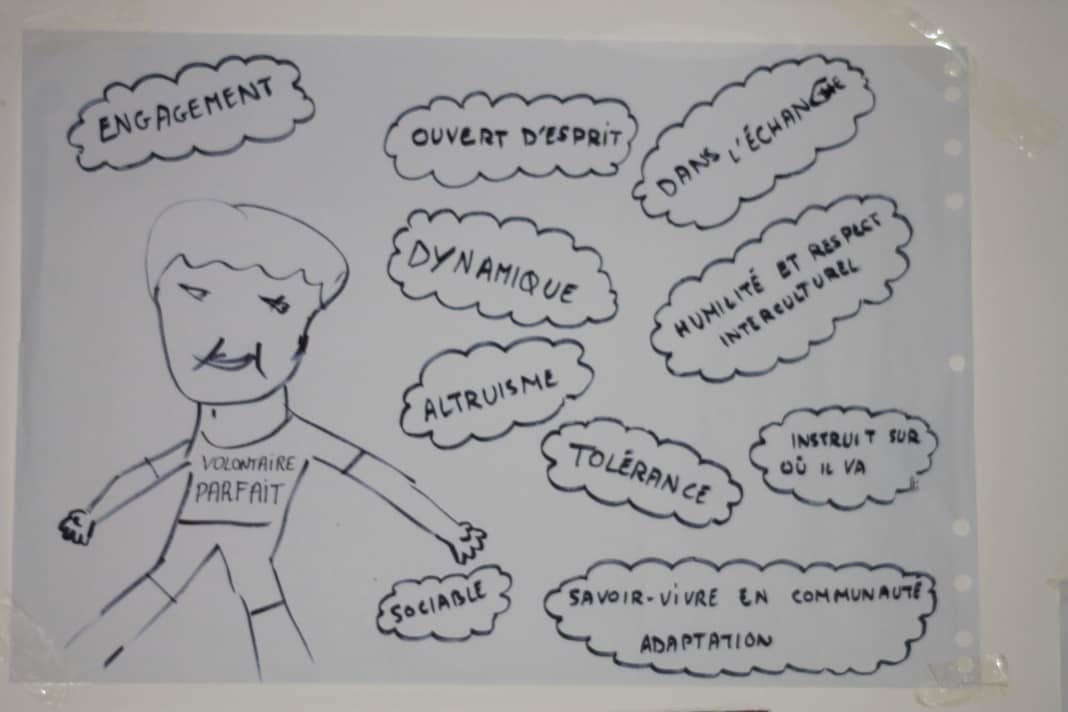 ENGAGEMENT
OUVERT D'ESPRIT
DANS L'ÉCHANGE
DYNAMIQUE
HUMILITÉ ET RESPECT
INTERCULTUREL
ALTRUISME
TOLÉRANCE
INSTRUIT SUR
OÙ IL VA
VOLONTAIRE
PARFAIT
SOCIABLE
SAVOIR-VIVRE EN COMMUNAUTÉ
ADAPTATION